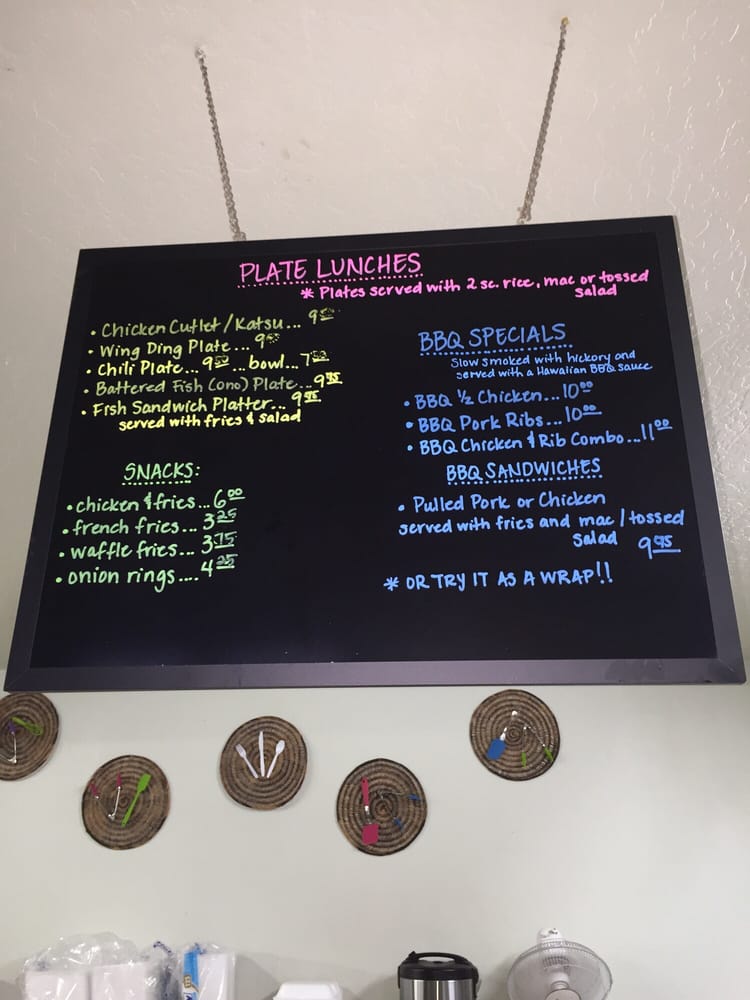 PLATE LUNCHES
* Plates served with 2 sc. rice, mac or tossed
salad
• Chicken Cutlet / Katsu... 9
• Wing Ding Plate... 9
• Chili Plate... 9 50 ... bowl... 7
• Battered Fish (ono) Plate... 9 95
• Fish Sandwich Platter... 9 95
served with fries & salad
SNACKS:
• chicken & fries... 6 00
• french fries... 3 25
• waffle fries... 3 75
• onion rings.... 4 25
BBQ SPECIALS
Slow smoked with hickory and
served with a Hawaiian BBQ sauce
• BBQ ½ Chicken... 10 00
• BBQ Pork Ribs... 10 00
• BBQ Chicken & Rib Combo... 11 00
BBQ SANDWICHES
• Pulled Pork or Chicken
served with fries and mac / tossed
salad 9 95
* OR TRY IT AS A WRAP!!